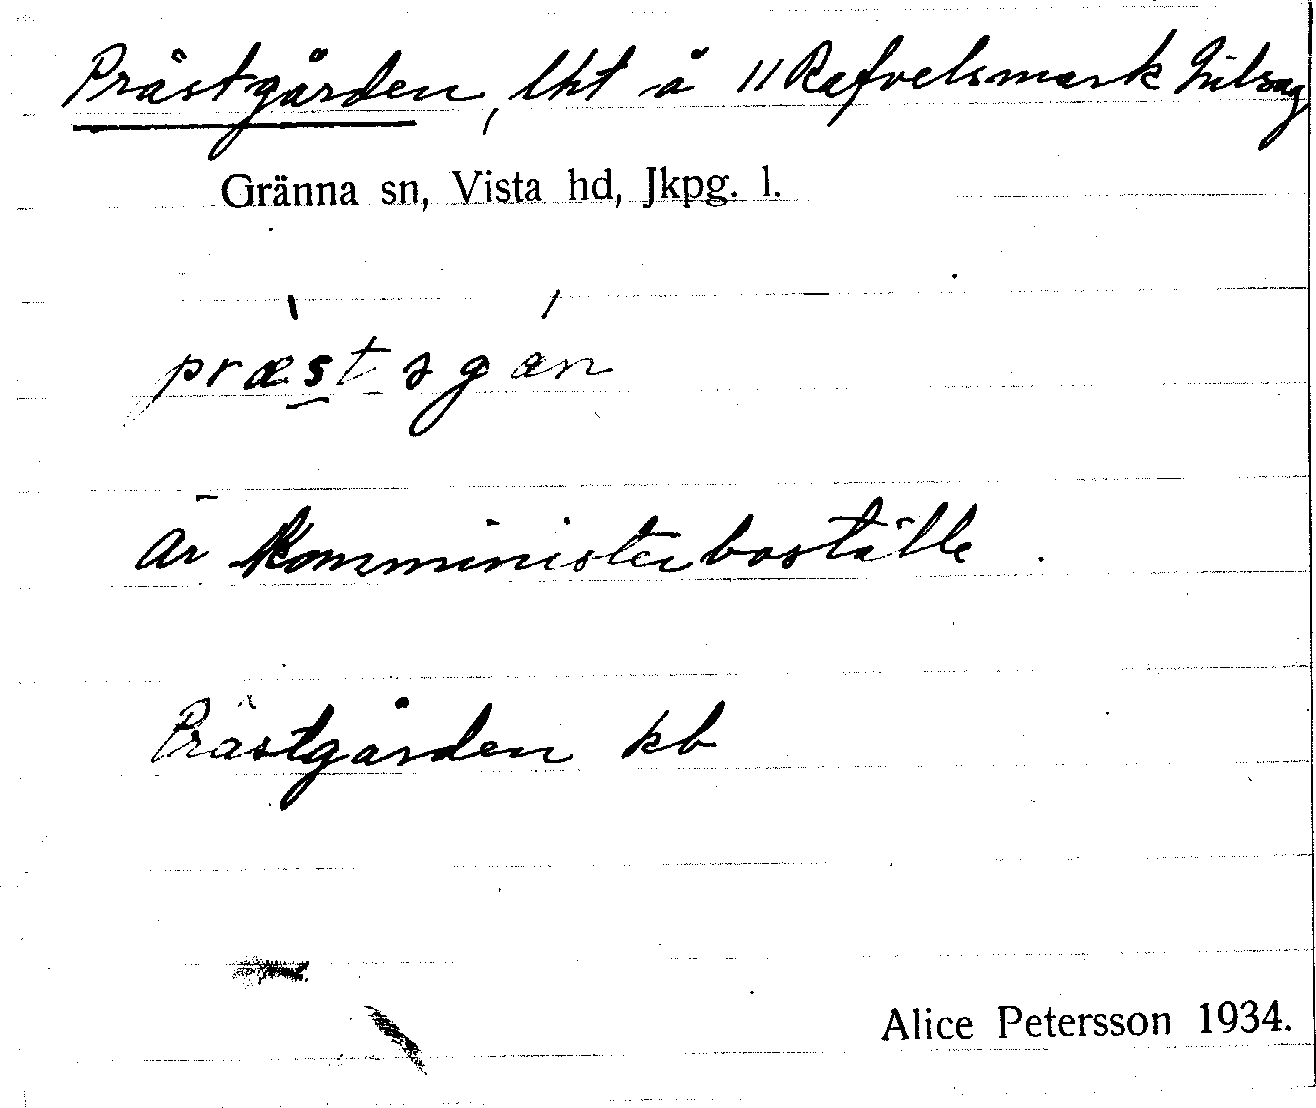 Prästgården, lht å "Rafvelsmark
Gränna sn, Vista hd, Jkpg. l.
præstsgan
Är komministerboställe.
Prästgården kb
Alice Petersson 1934.